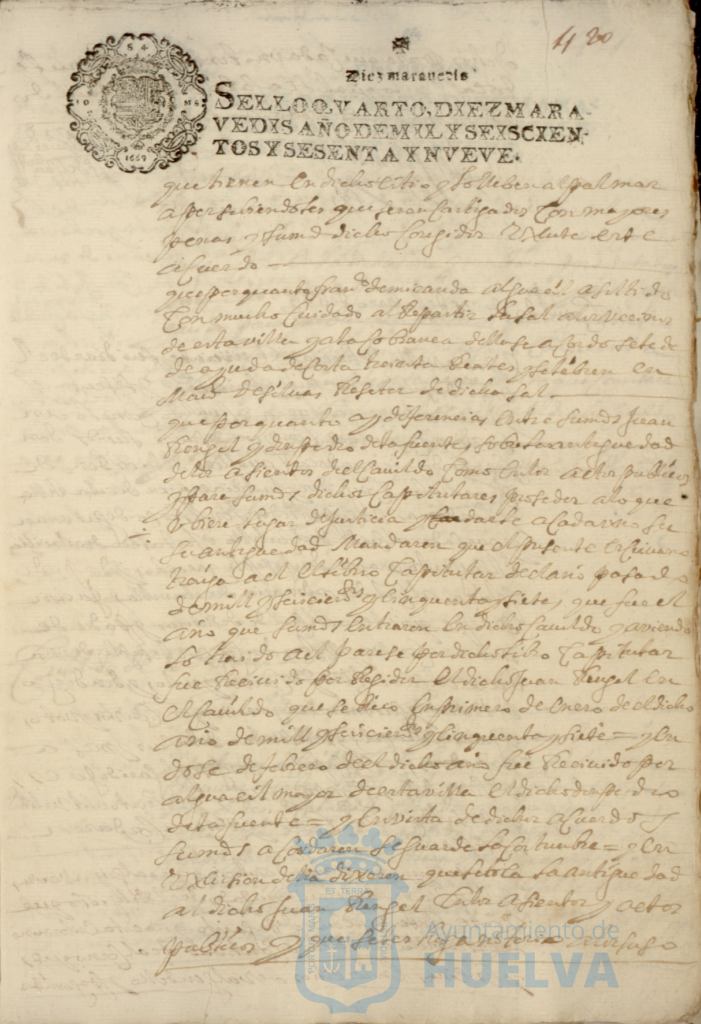 420
Diez maravedis
SELLO QVARTO, DIEZ MARA-
VEDIS AÑO DE MIL Y SEISCIEN-
TOS Y SESENTA Y NVEVE.
1669
que tienen en dicho sitio y lo lleben al palmar
apersebiendoles que seran castigados con mayores
penas y su md dicho Corregidor execute este
acuerdo
que por quanto fran.co de miranda alguacil a asistido
con mucho cuidado al repartir la sal a los vecinos
de esta villa y a la cobranca della se acordo se le de
de ayuda de costa treinta Reales y se le libren en
de silvas Resetor de dicha sal
que por quanto ay diferencias entre sus mds Juan
Rengel y don pedro de la fuente, sobre la antiguedad
de los asientos del Cavildo como en los actos publicos
y para sus mds dichos Capitulares proseder a lo que
ubiere lugar de justicia y darle a cada uno su
su antiguedad Mandaron que el presente escrivano
traiga a el el libro Capitular del año pasado
de mill y seiscientos y cinquenta y siete, que fue el
año que sus mds entraron en dicho cavildo y aviendo
lo traido a el parese por dicho libro Capitular
fue Recivido por Regidor el dicho Juan Rengel en
el Cavildo que se hico en primero de enero de el dicho
año de mill y seiscientos y cinquenta y siete = y en
dose de febrero de el dicho año fue Recivido por
alguacil mayor de esta villa el dicho don pedro
de la fuente = y en vista de dichos acuerdos
sus mds acordaron se guarde la costumbre = y en
execusion della dixeron que se le toca la antiguedad
al dicho Juan Rengel en los asientos y actos
publicos y que se les haga notorio
Ayuntamiento de
HUELVA